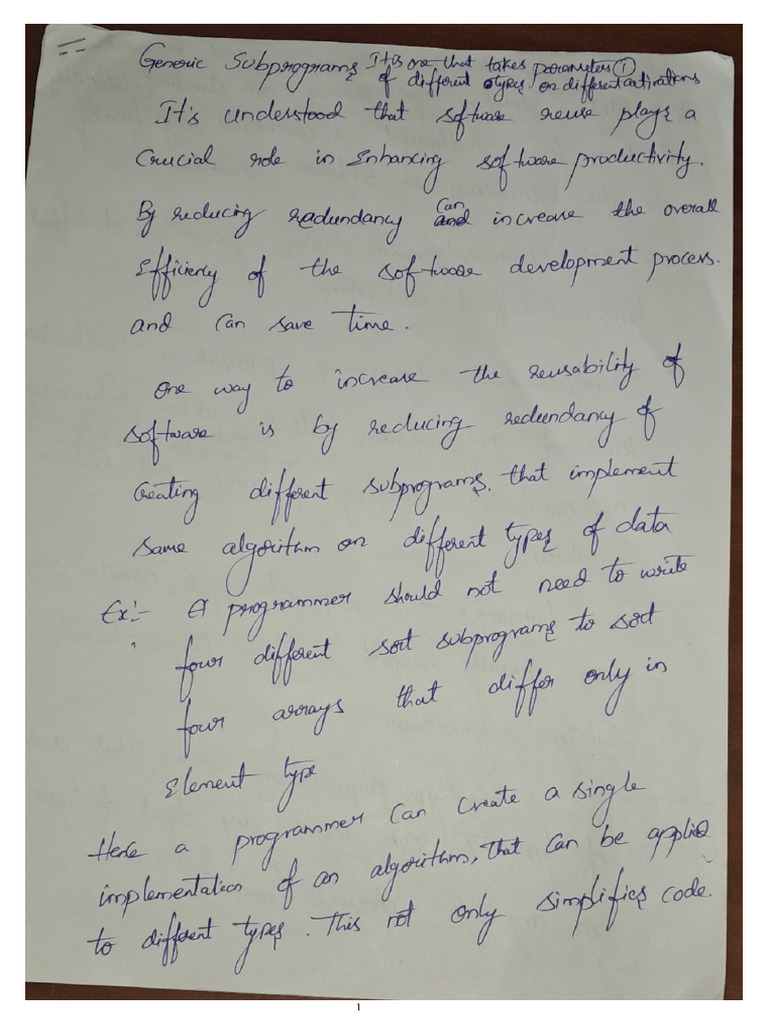 Generic Subprograms It is one that takes parameters ①
of different types on different activations
It's understood that software reuse plays a
Crucial role in Enhancing software productivity.
By reducing redundancy can increase the overall
Efficiency of the software development process.
and can save time.
One way to increase the reusability of
software is by reducing redundancy of
creating different subprograms. that implement
same algorithm on different types of data
Ex:- A programmer should not need to write
four different sort subprograms to sort
four arrays that differ only in
Element type
Here a programmer can create a single
implementation of an algorithm, that can be applied
to different types. This not only simplifies code.
1